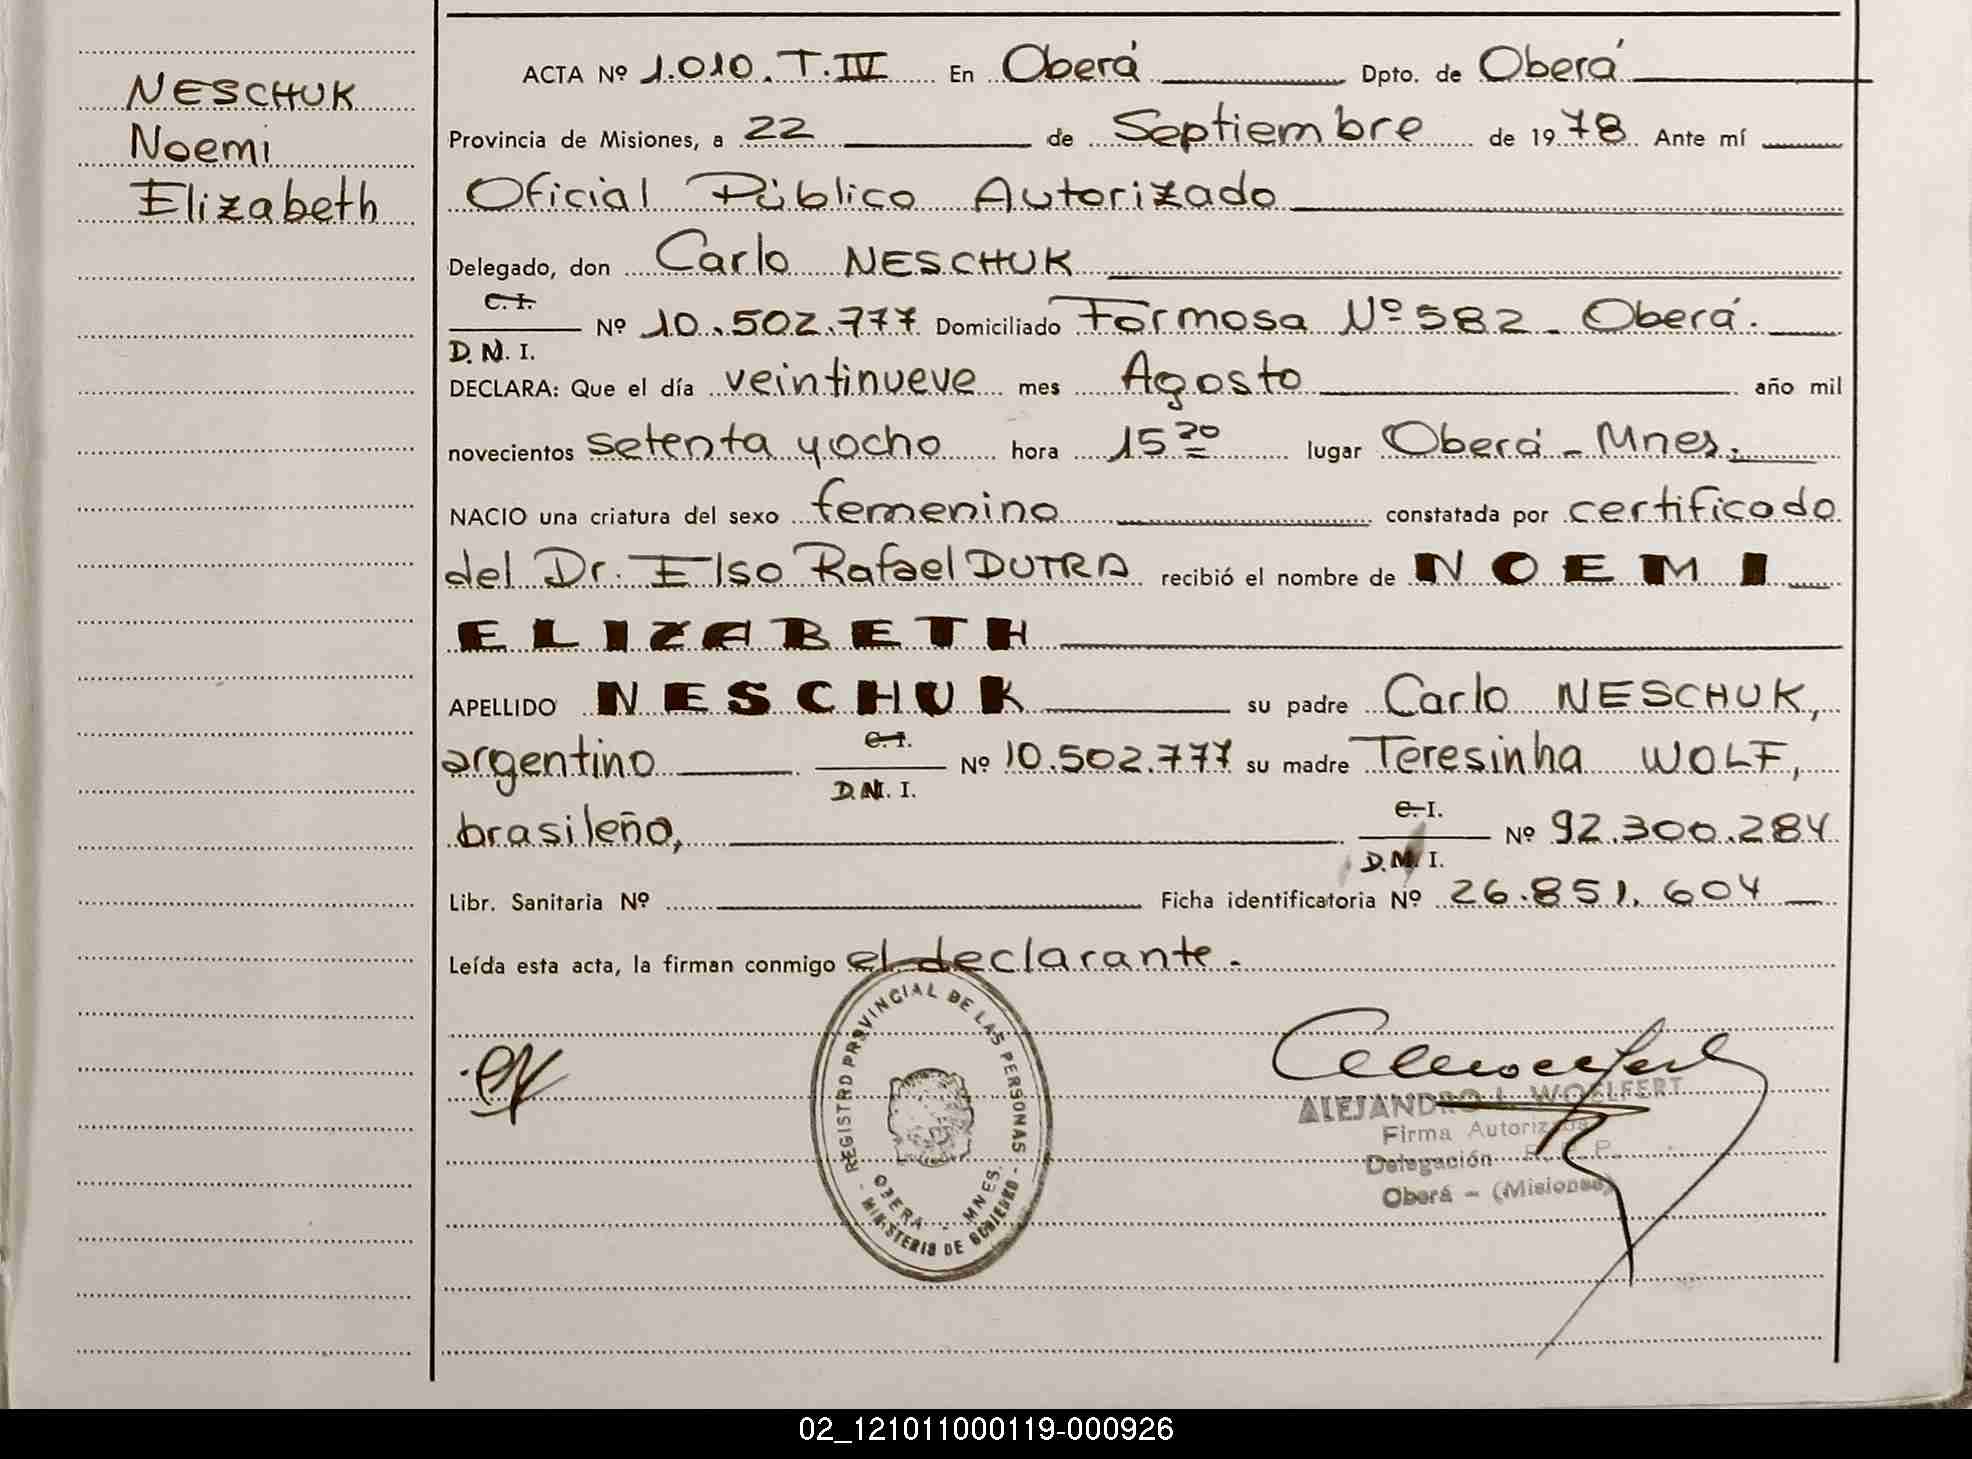 NESCHUK
Noemi
Elizabeth
ACTA Nº 1.010. T. IV En Oberá Dpto. de Oberá
Provincia de Misiones, a 22 de Septiembre de 1978 Ante mí
Oficial Público Autorizado
Delegado, don Carlo NESCHUK
C. I.
Nº 10.502.777 Domiciliado Formosa Nº 582 - Oberá.
D. N. I.
DECLARA: Que el día veintinueve mes Agosto año mil
novecientos setenta y ocho hora 15 lugar Oberá - Mnes.
NACIO una criatura del sexo femenino constatada por certificado
del Dr. Elso Rafael DUTRA recibió el nombre de NOEMI
ELIZABETH
APELLIDO NESCHUK su padre Carlo NESCHUK,
C. I.
argentino Nº 10.502.777 su madre Teresinha WOLF,
D. N. I.
C. I.
brasileño, Nº 92.300.284
D. N. I.
Libr. Sanitaria Nº Ficha identificatoria Nº 26.851.604
Leída esta acta, la firman conmigo el declarante.
REGISTRO PROVINCIAL DE LAS PERSONAS
OBERA - MNES.
MINISTERIO DE GOBIERNO
ALEJANDRO L. WOELFERT
Firma Autorizada
Delegación
Oberá - (Misiones)
02_121011000119-000926